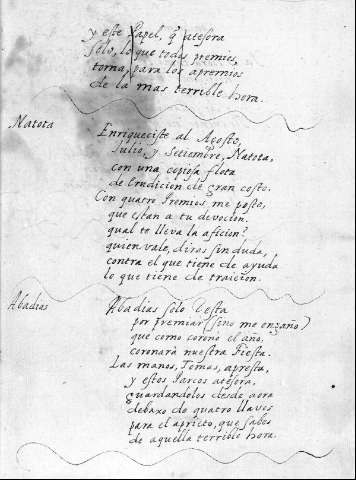 y este Papel, q̃ atesora
solo, lo que todos premios,
toma, para los apremios
de la mas terrible hora.
Matota
Enriqueciste al Agosto,
Julio, y Setiembre, Matota,
con una copiosa flota
de Erudicion de gran costo.
Con quatro Premios me posto,
que estan a tu devocion.
qual te lleva la aficion?
quien vale, diras sin duda,
contra el que tiene de ayuda
lo que tiene de traicion.
Abadias
Abadias solo resta
por premiar (sino me engaño)
que como coronò el año,
coronarà nuestra Fiesta.
Las manos, Tomas, apresta,
y estos Parcos atesora,
guardandolos desde aora
debaxo de quatro llaves
para el aprieto, que sabes
de aquella terrible hora.